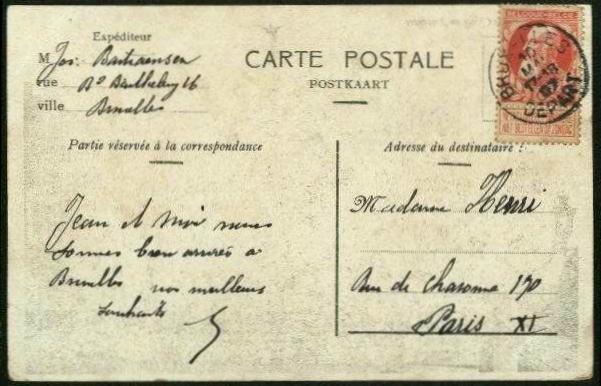 Expéditeur
M Jos. Bastiaensen
rue Bd Barthelemy 16
ville Bruxelles
CARTE POSTALE
POSTKAART
BELGIQUE-BELGIË
BRUXELLES
DÉPART
Partie réservée à la correspondance
Jean et moi nous
sommes bien arrivés à
Bruxelles nos meilleurs
souhaits
Adresse du destinataire :
Madame Henri
Rue de charonne 170
Paris XI